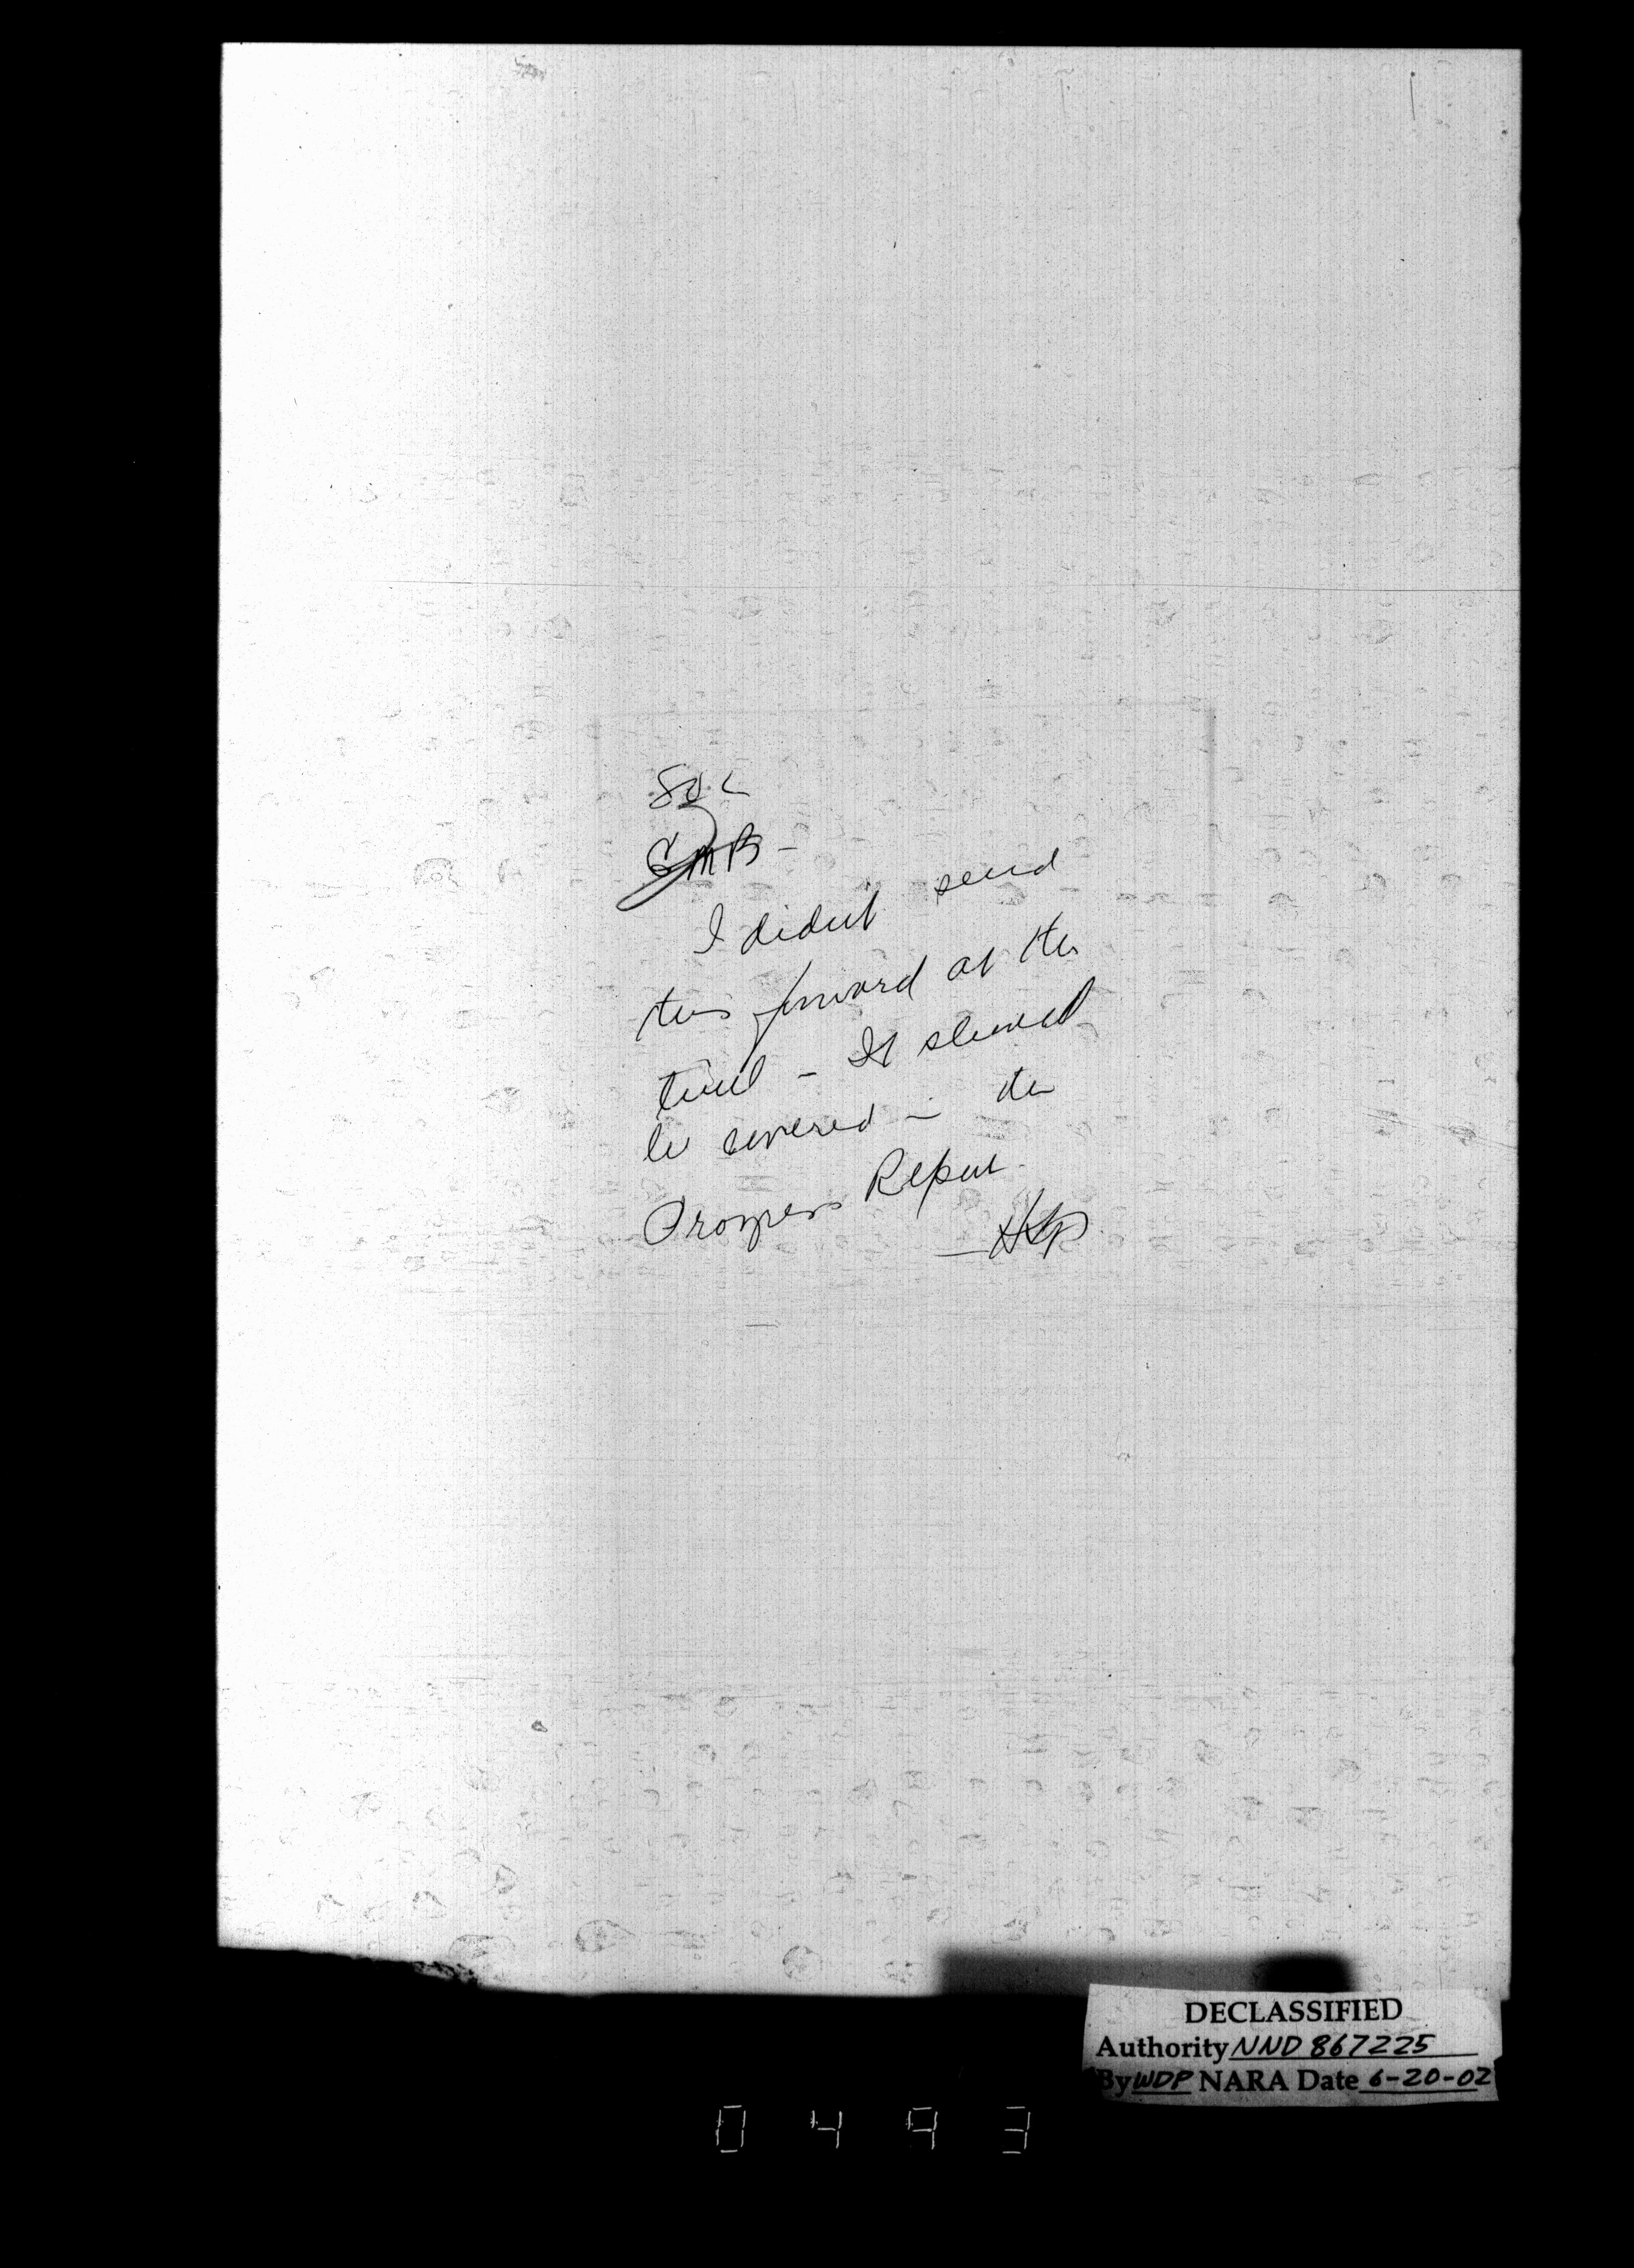 GMB -
I didn't send
this forward at this
time - It should
be covered in the
Progress Report.
DECLASSIFIED
Authority NND 867225
By WDP NARA Date 6-20-02
0493